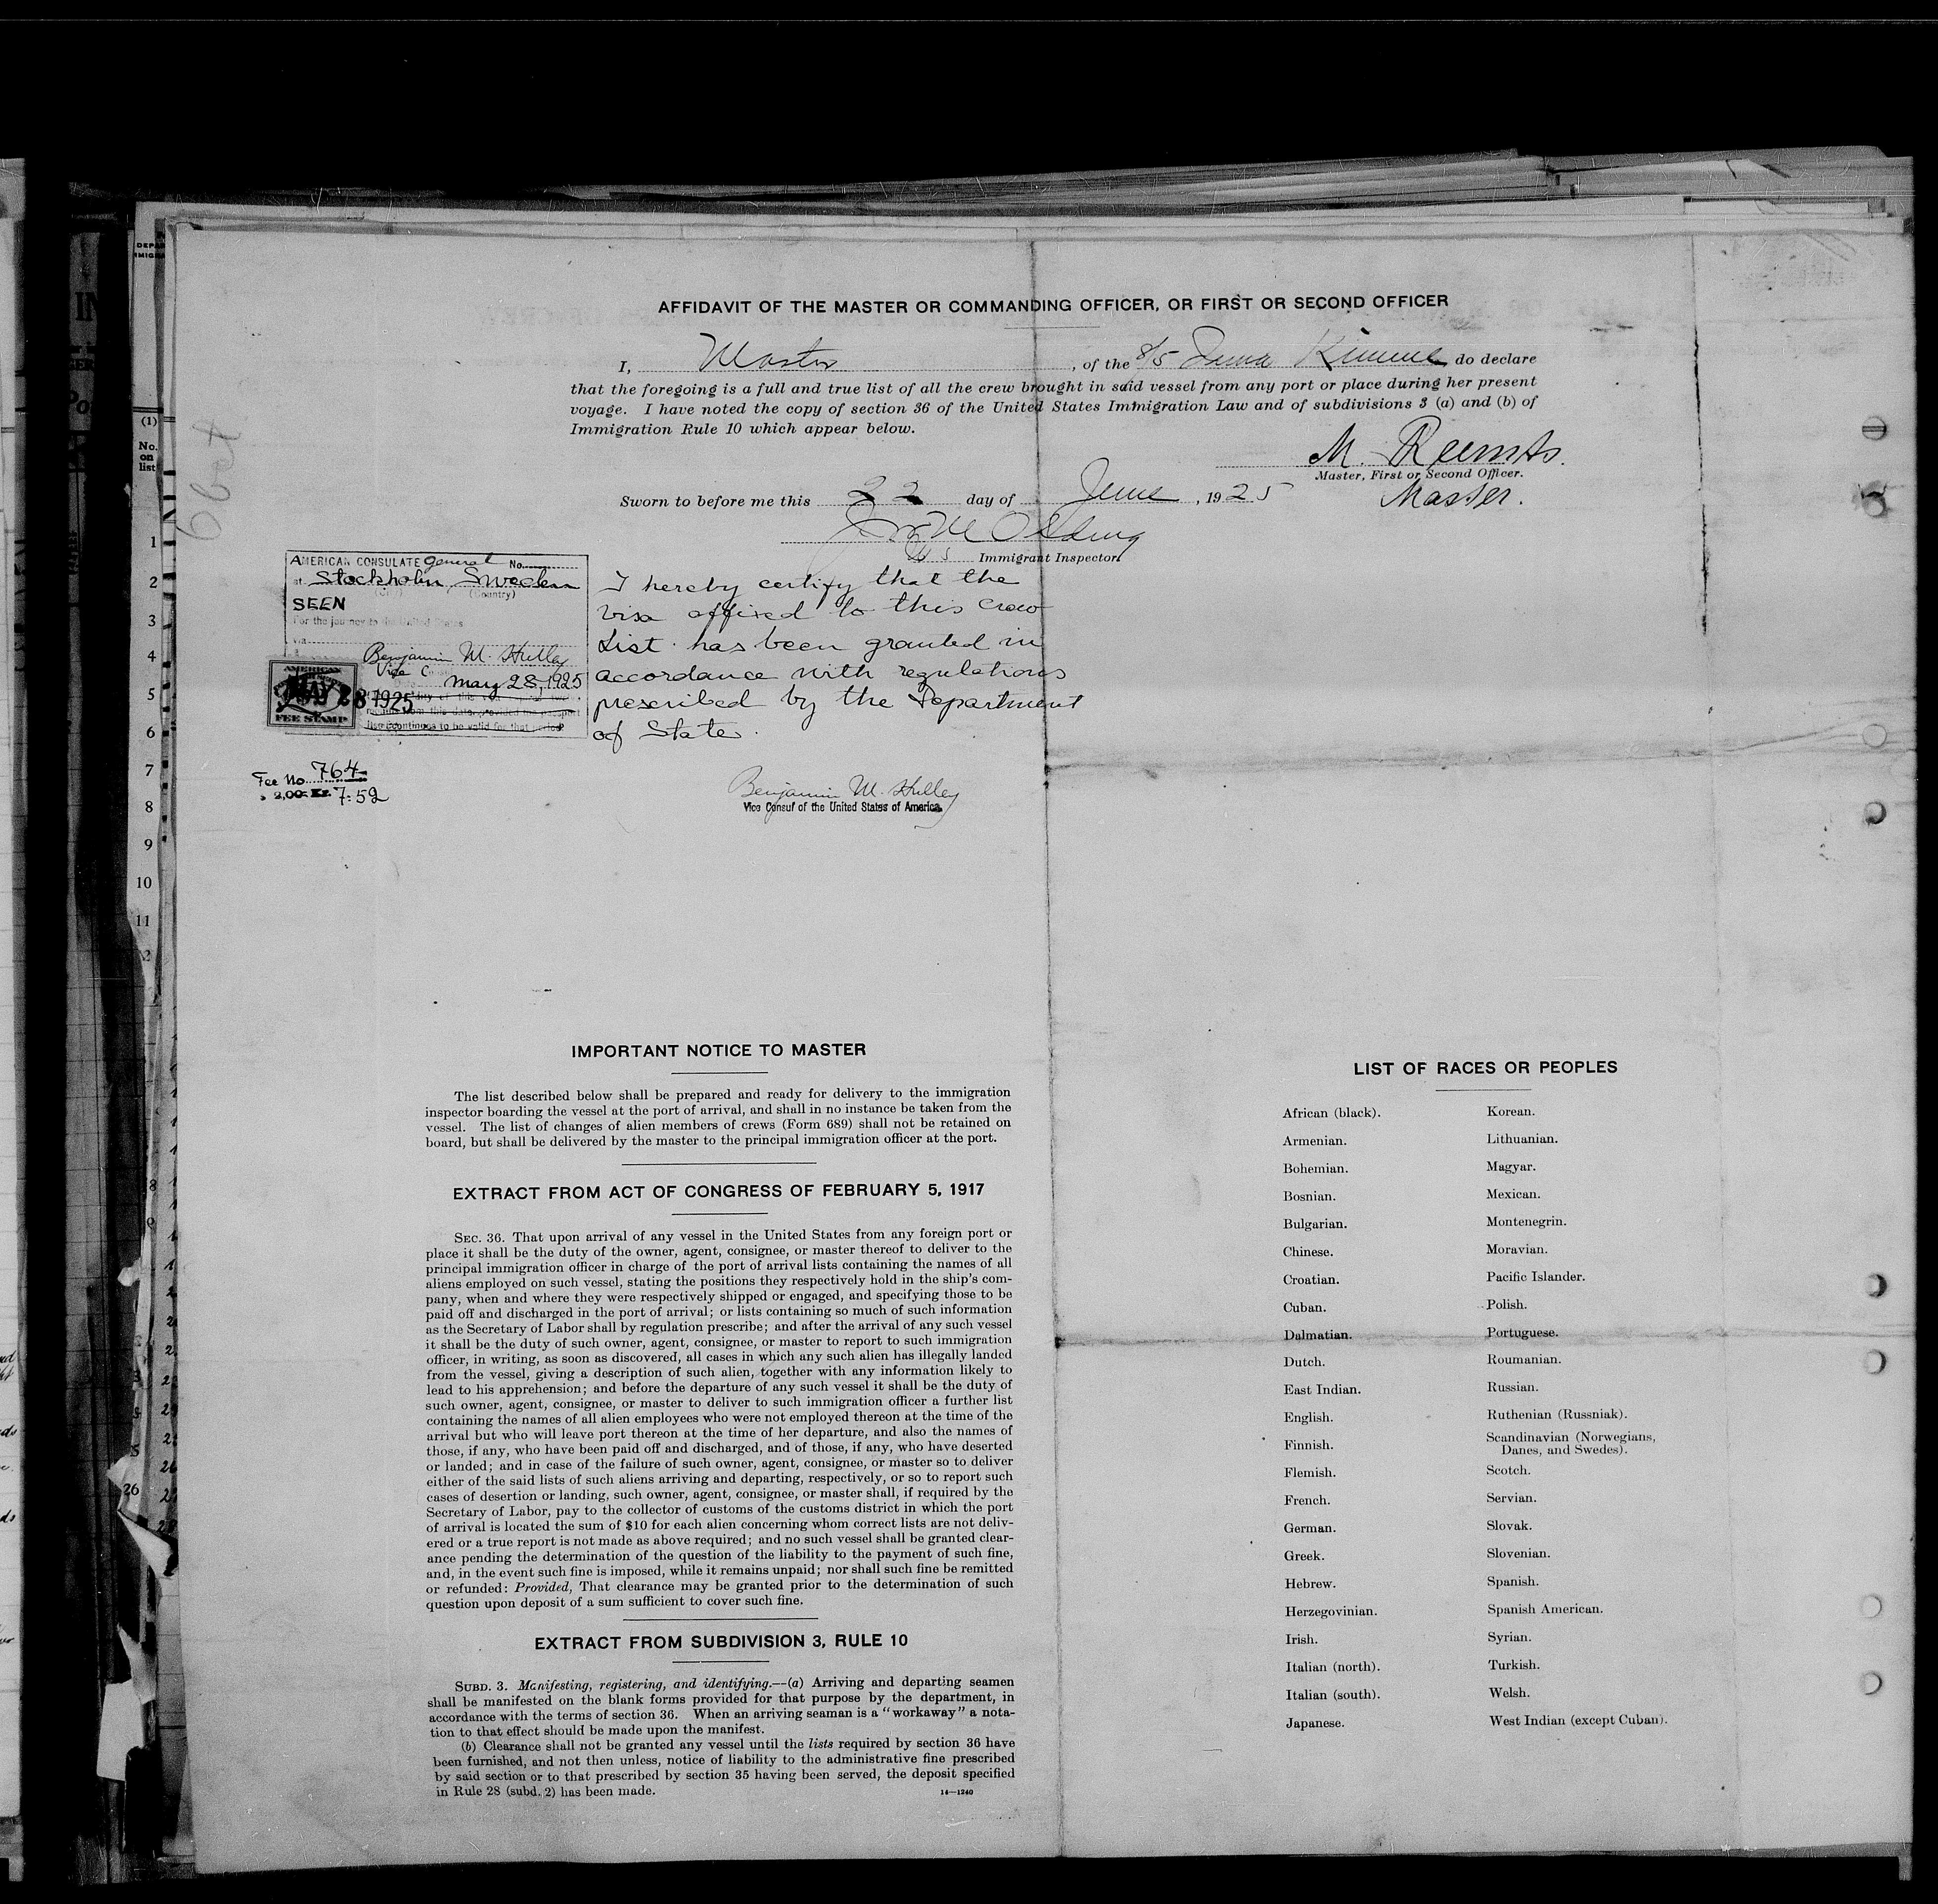 AFFIDAVIT OF THE MASTER OR COMMANDING OFFICER, OR FIRST OR SECOND OFFICER
I, Master, of the S/S Kimme do declare
that the foregoing is a full and true list of all the crew brought in said vessel from any port or place during her present
voyage. I have noted the copy of section 36 of the United States Immigration Law and of subdivisions 3 (a) and (b) of
Immigration Rule 10 which appear below.
M. Reemts.
Master, First or Second Officer.
Sworn to before me this 22 day of June, 1925
Master.
U S Immigrant Inspector.
AMERICAN CONSULATE General No.
at Stockholm, Sweden
(City) (Country)
SEEN
For the journey to the United States
via
Benjamin M. Hulley
Vice C
May 28, 1925
AMERICAN
MAY 28 1925
FEE STAMP
I hereby certify that the
visa affixed to this crew
List has been granted in
accordance with regulations
prescribed by the Department
of State.
Fee No. 764
2,00 Kr. 7:52
Benjamin M. Hulley
Vice Consul of the United States of America.
DEPA
IMIGRA
(1)
No.
on
list
1
2
3
4
5
6
7
8
9
10
11
26
IMPORTANT NOTICE TO MASTER
The list described below shall be prepared and ready for delivery to the immigration
inspector boarding the vessel at the port of arrival, and shall in no instance be taken from the
vessel. The list of changes of alien members of crews (Form 689) shall not be retained on
board, but shall be delivered by the master to the principal immigration officer at the port.
EXTRACT FROM ACT OF CONGRESS OF FEBRUARY 5, 1917
SEC. 36. That upon arrival of any vessel in the United States from any foreign port or
place it shall be the duty of the owner, agent, consignee, or master thereof to deliver to the
principal immigration officer in charge of the port of arrival lists containing the names of all
aliens employed on such vessel, stating the positions they respectively hold in the ship's com-
pany, when and where they were respectively shipped or engaged, and specifying those to be
paid off and discharged in the port of arrival; or lists containing so much of such information
as the Secretary of Labor shall by regulation prescribe; and after the arrival of any such vessel
it shall be the duty of such owner, agent, consignee, or master to report to such immigration
officer, in writing, as soon as discovered, all cases in which any such alien has illegally landed
from the vessel, giving a description of such alien, together with any information likely to
lead to his apprehension; and before the departure of any such vessel it shall be the duty of
such owner, agent, consignee, or master to deliver to such immigration officer a further list
containing the names of all alien employees who were not employed thereon at the time of the
arrival but who will leave port thereon at the time of her departure, and also the names of
those, if any, who have been paid off and discharged, and of those, if any, who have deserted
or landed; and in case of the failure of such owner, agent, consignee, or master so to deliver
either of the said lists of such aliens arriving and departing, respectively, or so to report such
cases of desertion or landing, such owner, agent, consignee, or master shall, if required by the
Secretary of Labor, pay to the collector of customs of the customs district in which the port
of arrival is located the sum of $10 for each alien concerning whom correct lists are not deliv-
ered or a true report is not made as above required; and no such vessel shall be granted clear-
ance pending the determination of the question of the liability to the payment of such fine,
and, in the event such fine is imposed, while it remains unpaid; nor shall such fine be remitted
or refunded: Provided, That clearance may be granted prior to the determination of such
question upon deposit of a sum sufficient to cover such fine.
EXTRACT FROM SUBDIVISION 3, RULE 10
SUBD. 3. Manifesting, registering, and identifying.—(a) Arriving and departing seamen
shall be manifested on the blank forms provided for that purpose by the department, in
accordance with the terms of section 36. When an arriving seaman is a "workaway" a nota-
tion to that effect should be made upon the manifest.
(b) Clearance shall not be granted any vessel until the lists required by section 36 have
been furnished, and not then unless, notice of liability to the administrative fine prescribed
by said section or to that prescribed by section 35 having been served, the deposit specified
in Rule 28 (subd. 2) has been made.
14—1240
LIST OF RACES OR PEOPLES
African (black).
Armenian.
Bohemian.
Bosnian.
Bulgarian.
Chinese.
Croatian.
Cuban.
Dalmatian.
Dutch.
East Indian.
English.
Finnish.
Flemish.
French.
German.
Greek.
Hebrew.
Herzegovinian.
Irish.
Italian (north).
Italian (south).
Japanese.
Korean.
Lithuanian.
Magyar.
Mexican.
Montenegrin.
Moravian.
Pacific Islander.
Polish.
Portuguese.
Roumanian.
Russian.
Ruthenian (Russniak).
Scandinavian (Norwegians,
Danes, and Swedes).
Scotch.
Servian.
Slovak.
Slovenian.
Spanish.
Spanish American.
Syrian.
Turkish.
Welsh.
West Indian (except Cuban).